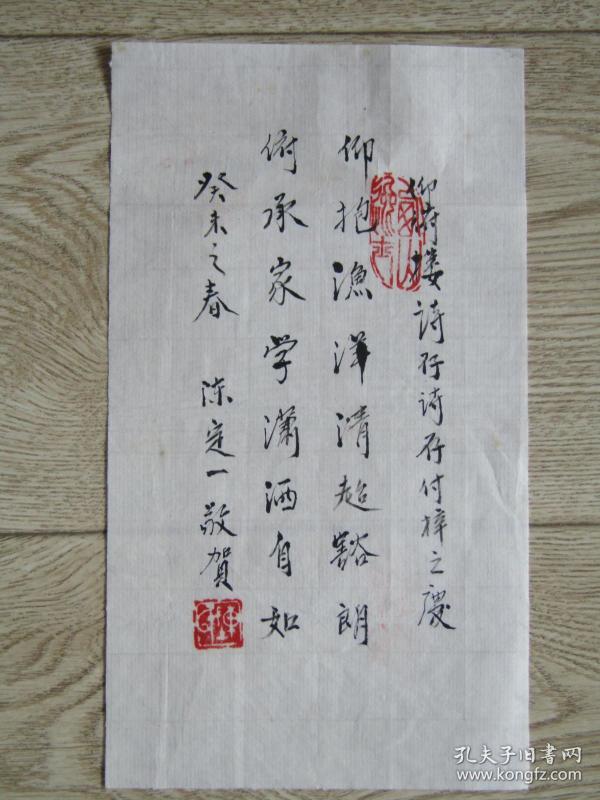 仰诗楼诗存诗存付梓之慶
仰抱渔洋清超豁朗
俯承家学潇洒自如
癸未之春 陈定一敬賀
孔夫子旧書网
www.kongfz.com